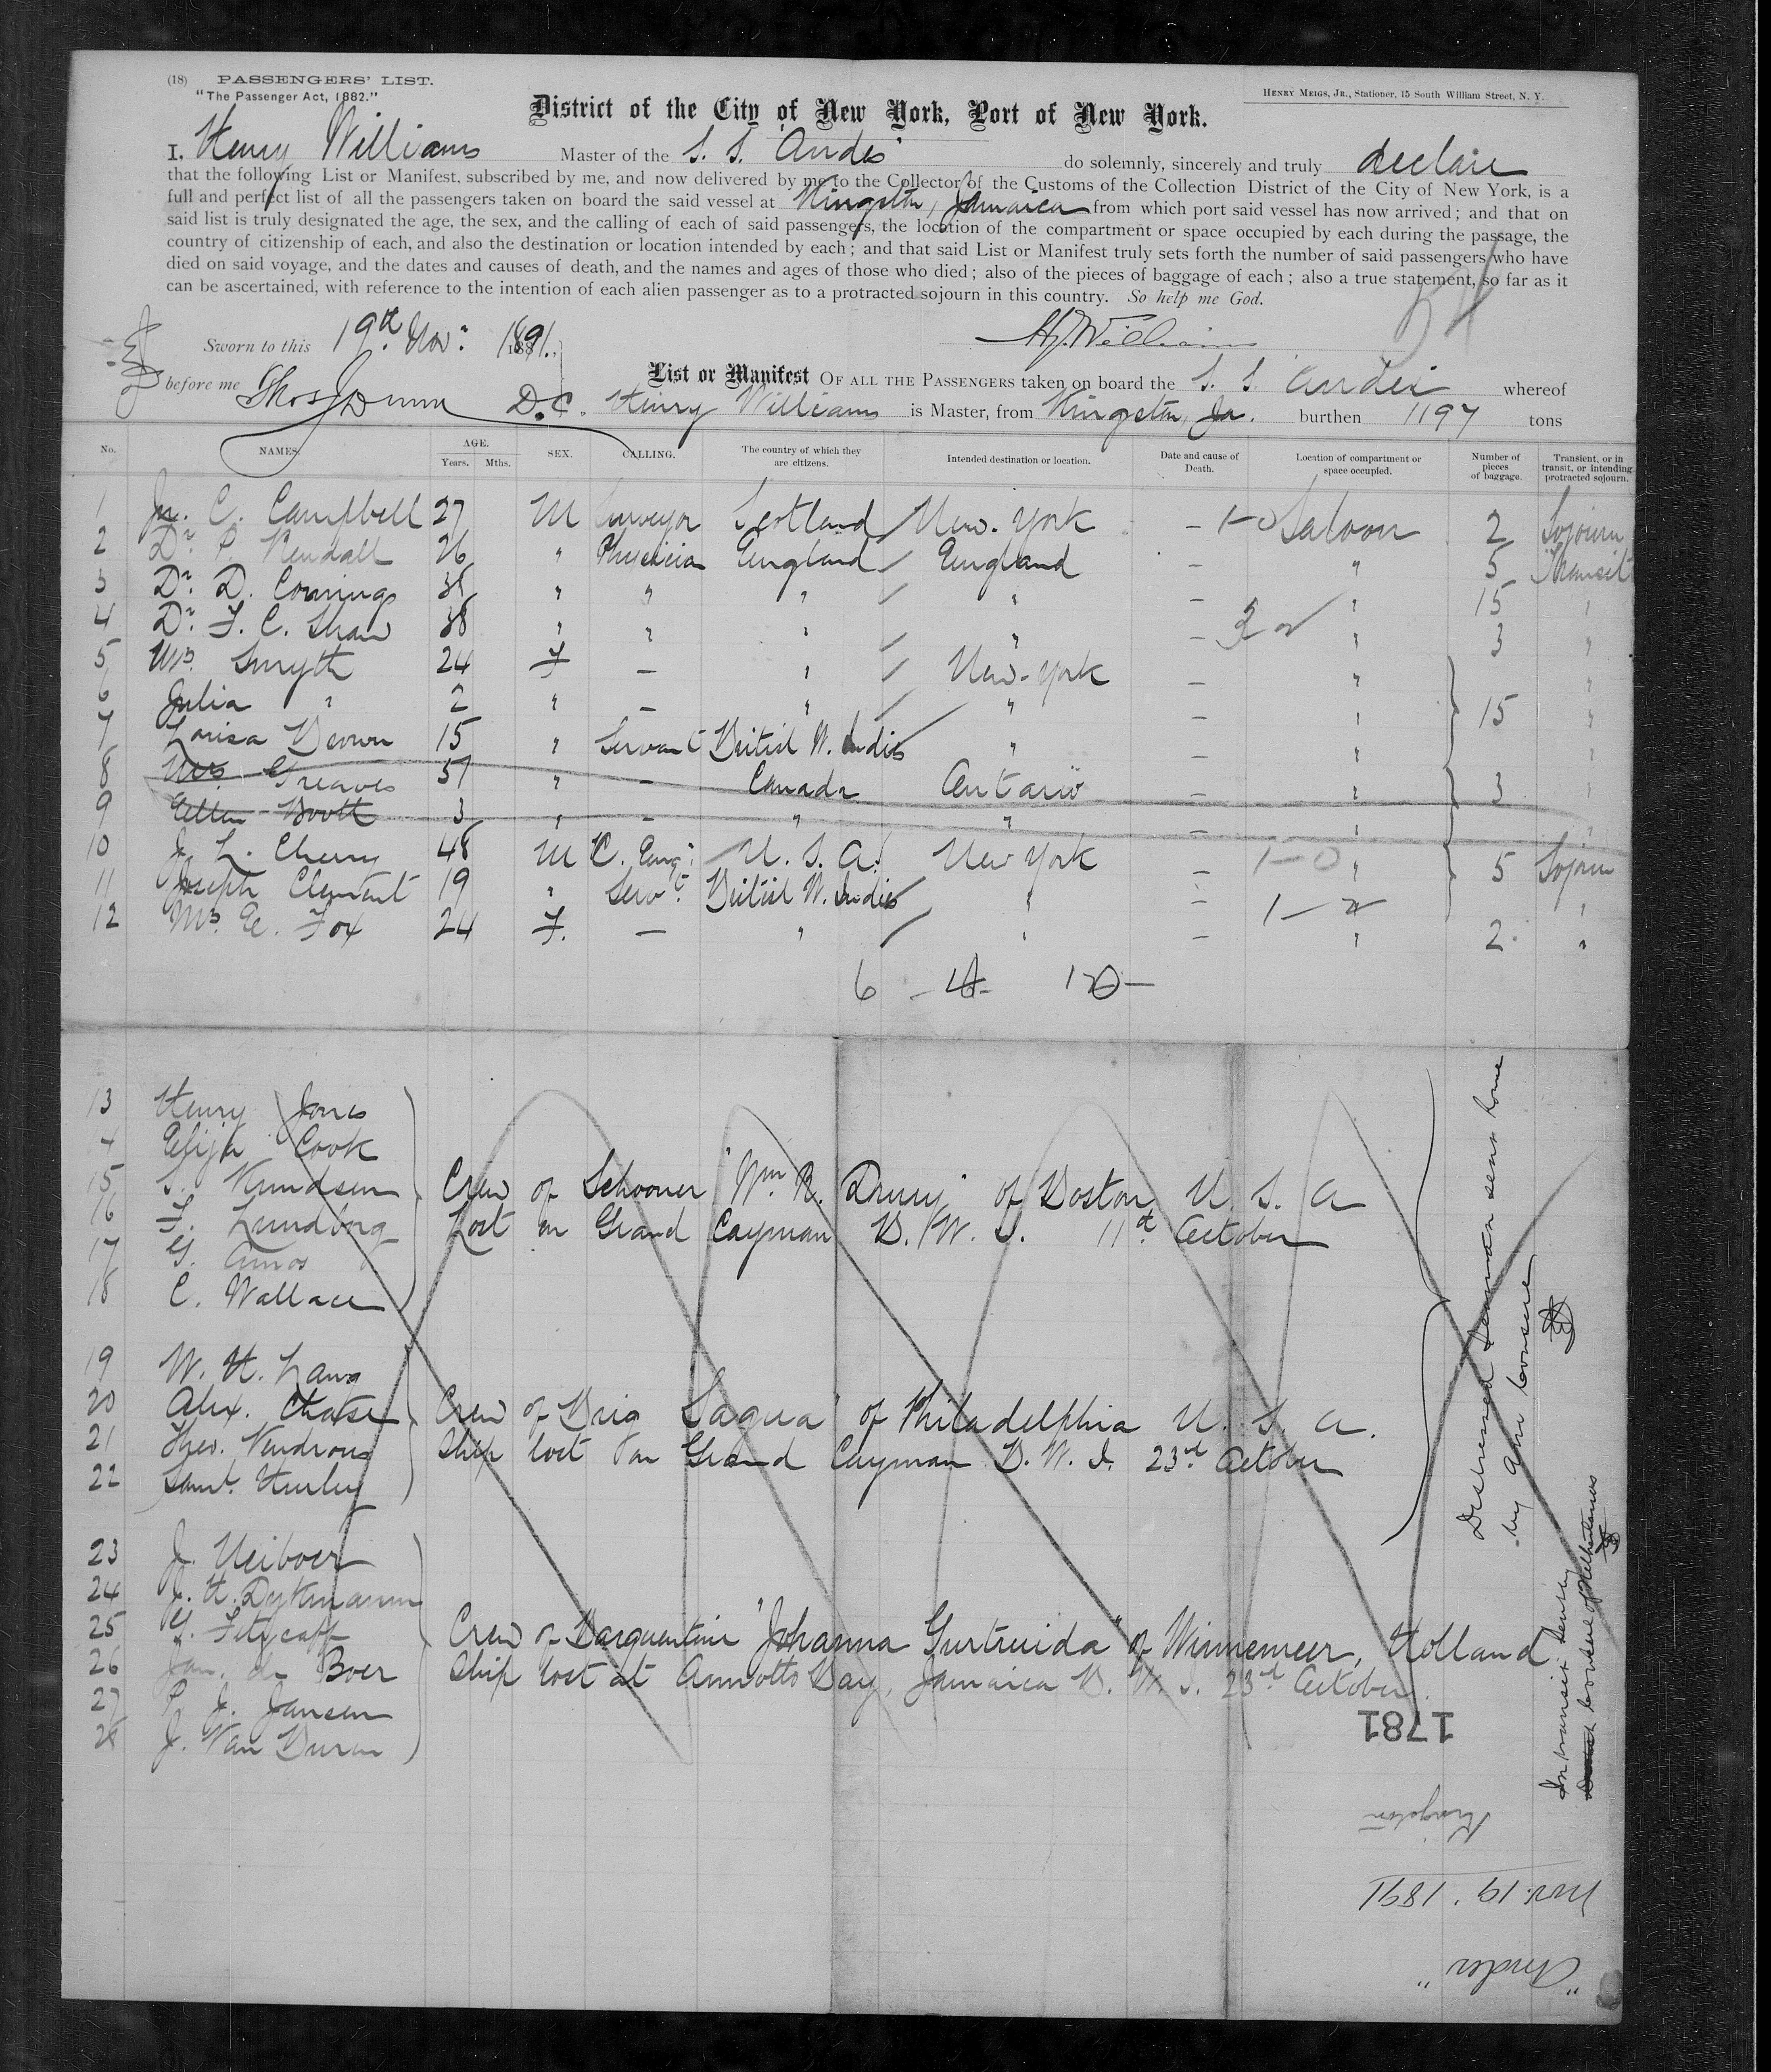 (18) PASSENGERS' LIST.
"The Passenger Act, 1882."
HENRY MEIGS, JR., Stationer, 15 South William Street, N. Y.
District of the City of New York, Port of New York.
I, Henry Williams Master of the S. S. "Andes" do solemnly, sincerely and truly declare
that the following List or Manifest, subscribed by me, and now delivered by me to the Collector of the Customs of the Collection District of the City of New York, is a
full and perfect list of all the passengers taken on board the said vessel at Kingston, Jamaica from which port said vessel has now arrived; and that on
said list is truly designated the age, the sex, and the calling of each of said passengers, the location of the compartment or space occupied by each during the passage, the
country of citizenship of each, and also the destination or location intended by each; and that said List or Manifest truly sets forth the number of said passengers who have
died on said voyage, and the dates and causes of death, and the names and ages of those who died; also of the pieces of baggage of each; also a true statement, so far as it
can be ascertained, with reference to the intention of each alien passenger as to a protracted sojourn in this country. So help me God.
Sworn to this 19th Nov: 1891. Hy. Williams
before me Thos J Dunn D.C.
List or Manifest OF ALL THE PASSENGERS taken on board the S. S. Andes whereof
Henry Williams is Master, from Kingston, Ja. burthen 1197 tons
No. NAMES. AGE. Years. Mths. SEX. CALLING. The country of which they are citizens. Intended destination or location. Date and cause of Death. Location of compartment or space occupied. Number of pieces of baggage. Transient, or in transit, or intending protracted sojourn.
1 Jn. C. Campbell 27 M Surveyor Scotland New York - 1-0 Saloon 2 Sojourn
2 Dr. P. Kendall 26 " Physician England England - " 5 Transit
3 Dr. D. " " " " - " 15 "
4 Dr. F. C. Shaw 38 " " " " - " 3 "
5 Mrs. Smyth 24 F - " New York - " "
6 Julia " 2 " - " " - " 15 "
7 Louisa Brown 15 " Servant British W. Indies " - " "
8 Mrs Greaves 57 " - Canada Ontario - " 3 "
9 Ellen Boott 3 " - " " - " "
10 J. L. Cherry 48 M C. Engr. U. S. A. New York - 1-0 " 5 Sojourn
11 Joseph Clement 19 " Servt. British W. Indies " - "
12 Mrs. E. Fox 24 F. - " " - " 2 "
6
13 Henry Jones
4 Elija Cook
15 S. Knudsen Crew of Schooner "Wm. R. Drury" of Boston U. S. A
16 F. Lundborg Lost on Grand Cayman B. W. I. 11th October
17 G. Amos
18 C. Wallace
19 W. H. Lang
20 Alex. Chase Crew of Brig "Sagua" of Philadelphia U. S. A.
21 Theo. Ship lost on Grand Cayman B. W. I. 23rd October
22 Saml. Hurley
Distressed Seamen sent home
by Am consul
23 J. Neiboer
24 J. H. Dykmann
25 G. Crew of Barquentine "Johanna Gurtruida" of Holland
26 Jan. de Boer Ship lost at Annotto Bay, Jamaica B. W. I. 23rd October.
27 P. J. Jansen
28 J. Van Buren
In transit sent by
consul of Netherlands
1781
Kingston
Nov. 19. 1891
"Andes"